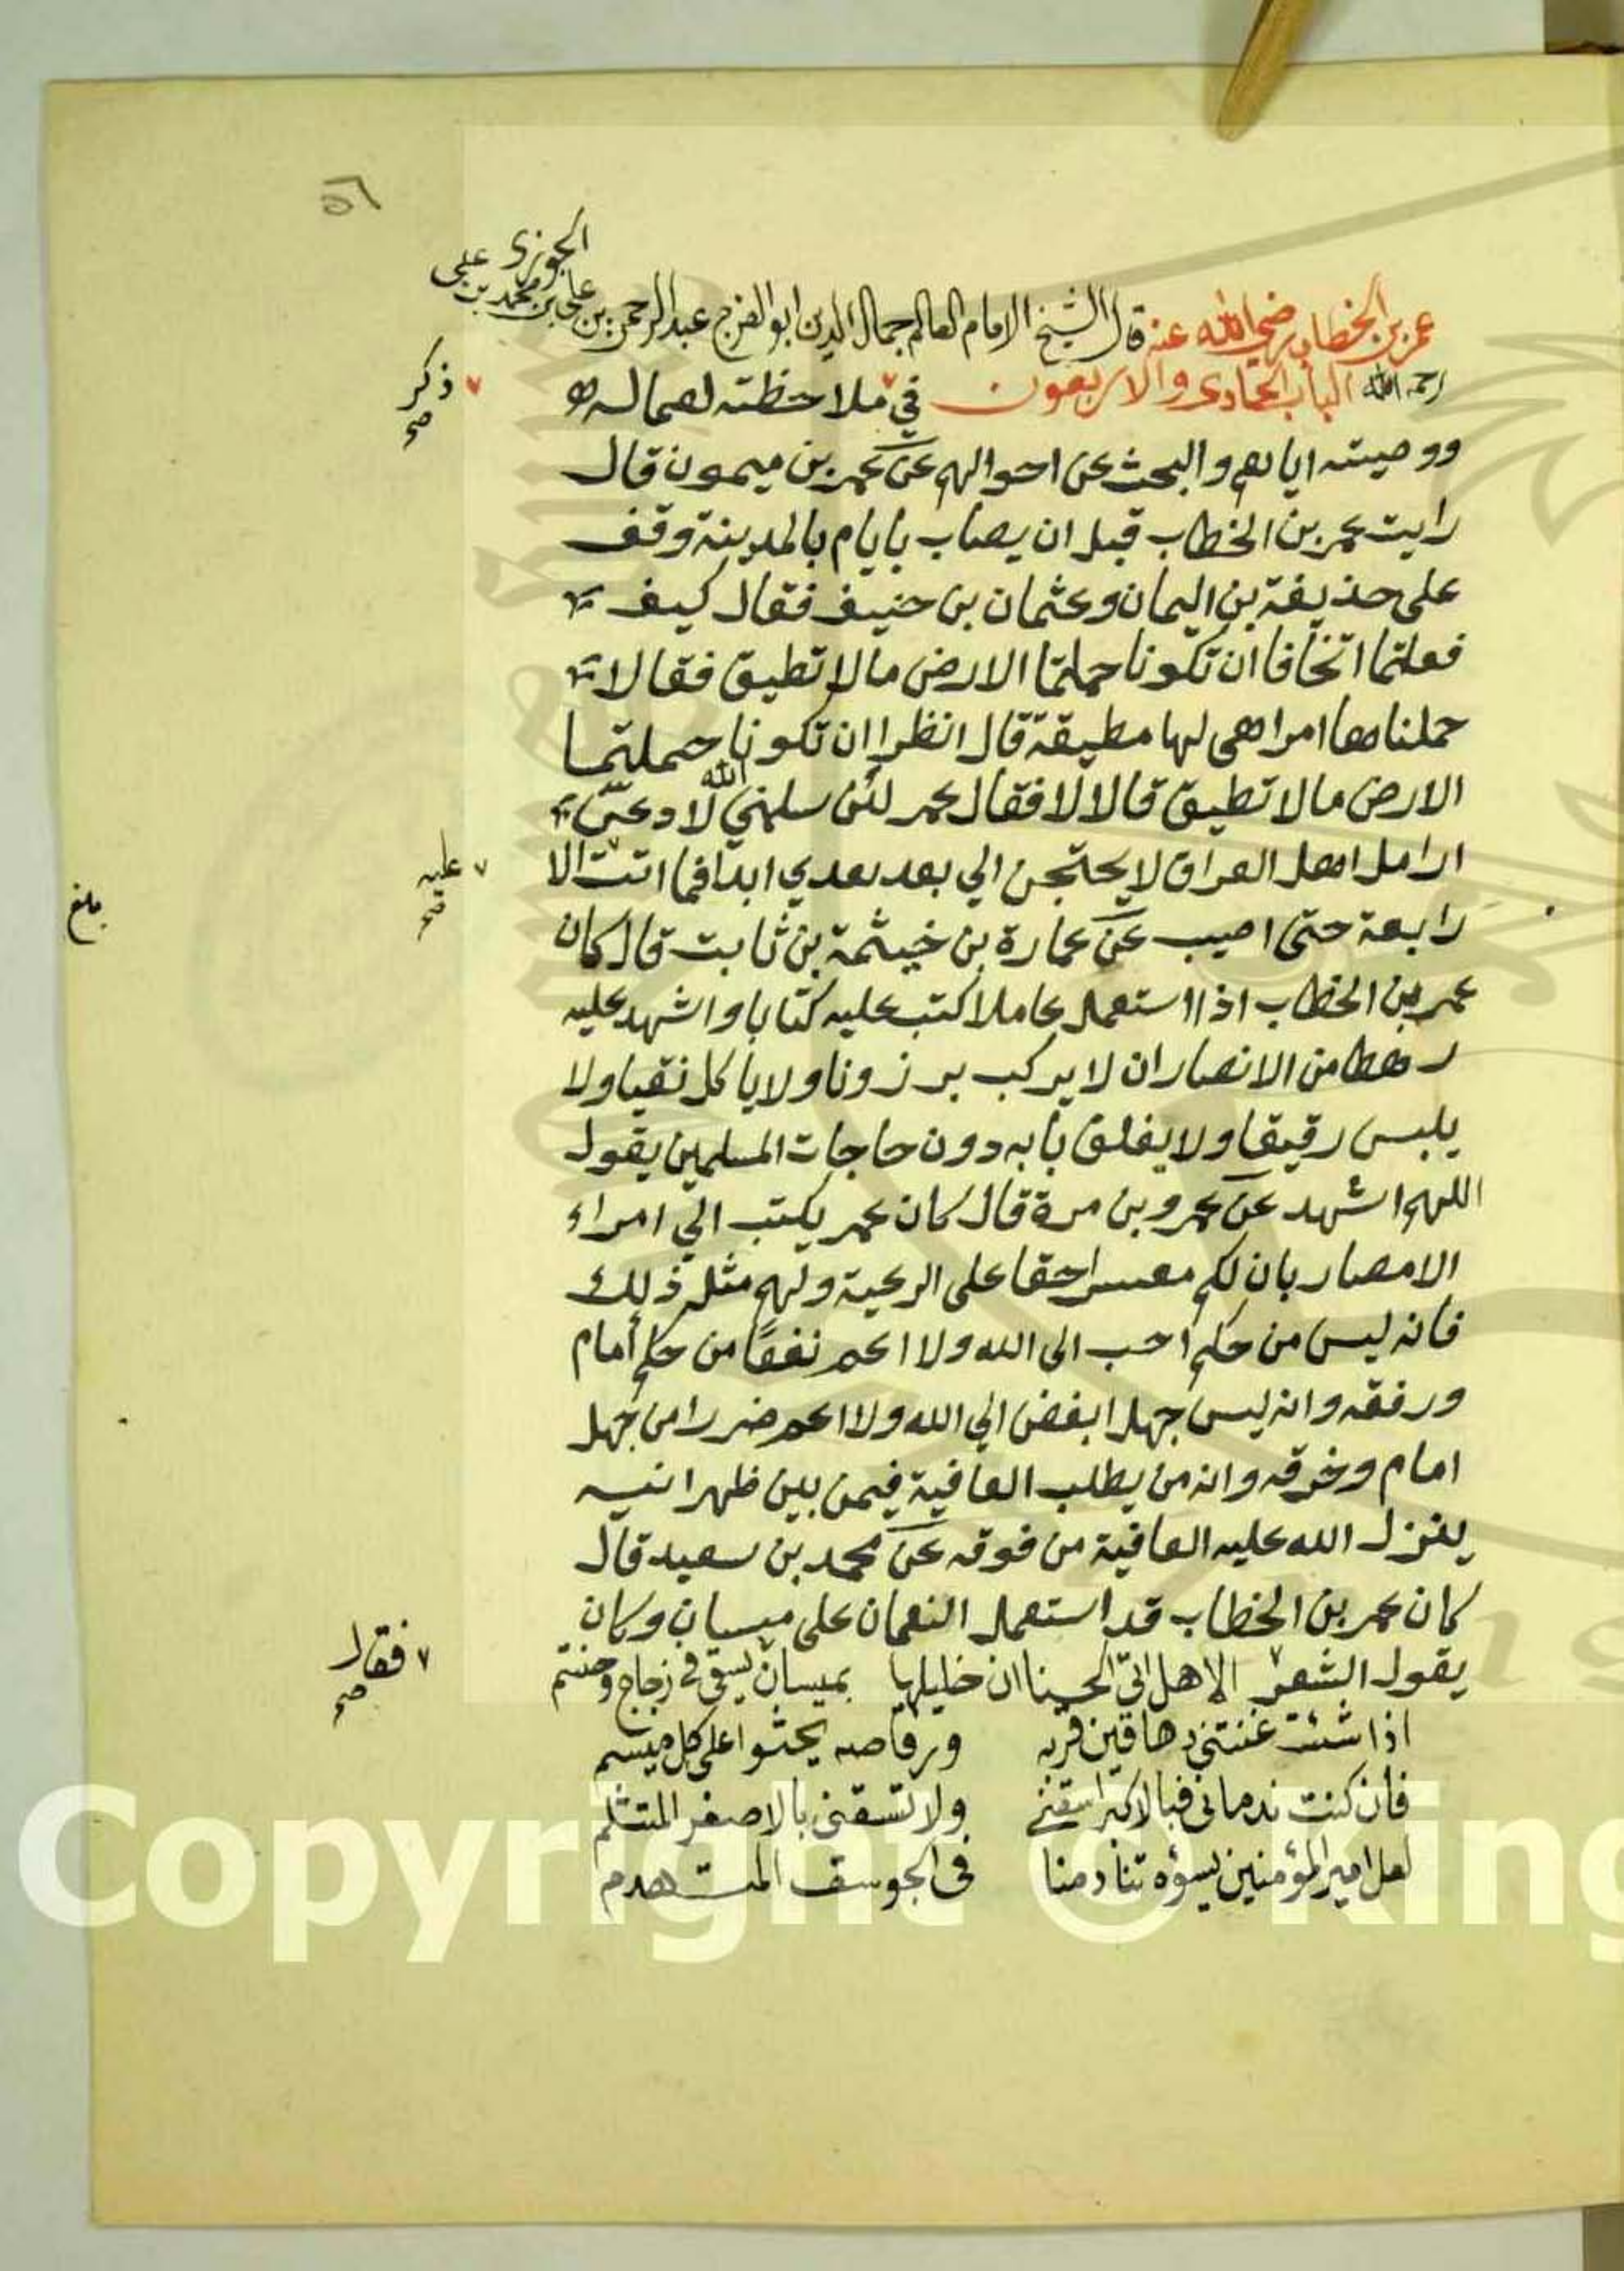 ٥٦
عمر بن الخطاب رضي الله عنه قال الشيخ الامام العالم جمال الدين ابو الفرج عبد الرحمن بن علي بن محمد بن علي الجوزي
رحمه الله الباب الحادى والاربعون في ملاحظته لعماله
ذكر صح
ووصيته اياهم والبحث عن احوالهم عن عمر بن ميمون قال
رايت عمر بن الخطاب قبل ان يصاب بايام بالمدينة وقف
على حذيفة بن اليمان وعثمان بن حنيف فقال كيف
فعلتما اتخافا ان تكونا حملتما الارض مالا تطيق فقالا
حملناها امرا هى لها مطيقة قال انظرا ان تكونا حملتما
الارض مالا تطيق قالا لا فقال عمر لئن سلمني الله لادعن
ارامل اهل العراق لا يحتجن الي بعد بعدي ابدا فما اتت الا
عليه صح
بلغ
رابعة حتى اصيب عن عمارة بن خيثمة بن ثابت قال كان
عمر بن الخطاب اذا استعمل عاملا كتب عليه كتابا واشهد عليه
رهطا من الانصار ان لا يركب برزونا ولا ياكل نقيا ولا
يلبس رقيقا ولا يغلق بابه دون حاجات المسلمين يقول
اللهم اشهد عن عمرو بن مرة قال كان عمر يكتب الي امراء
الامصار بان لكم معسرا حقا على الرعية ولهم مثل ذلك
فانه ليس من حلم احب الى الله ولا اعم نفعًا من حلم امام
ورفقه وانه ليس جهل ابغض الي الله ولا اعم ضررا من جهل
امام وخرقه وانه من يطلب العافية فيمن بين ظهرانيه
ينزل الله عليه العافية من فوقه عن محمد بن سعيد قال
كان عمر بن الخطاب قد استعمل النعمان على ميسان وكان
يقول الشعر الا هل اتى الحسنا ان خليلها بميسان يسقى في زجاج وحنتم
فقال صح
اذا شئت غنتني دهاقين قريه ورقاصه يحثوا على كل ميسم
فان كنت ندمانى فبالاكبر اسقني ولا تسقني بالاصغر المتثلم
لعل امير المؤمنين يسؤه تنادمنا فى الجوسق المتهدم
Copyright © King